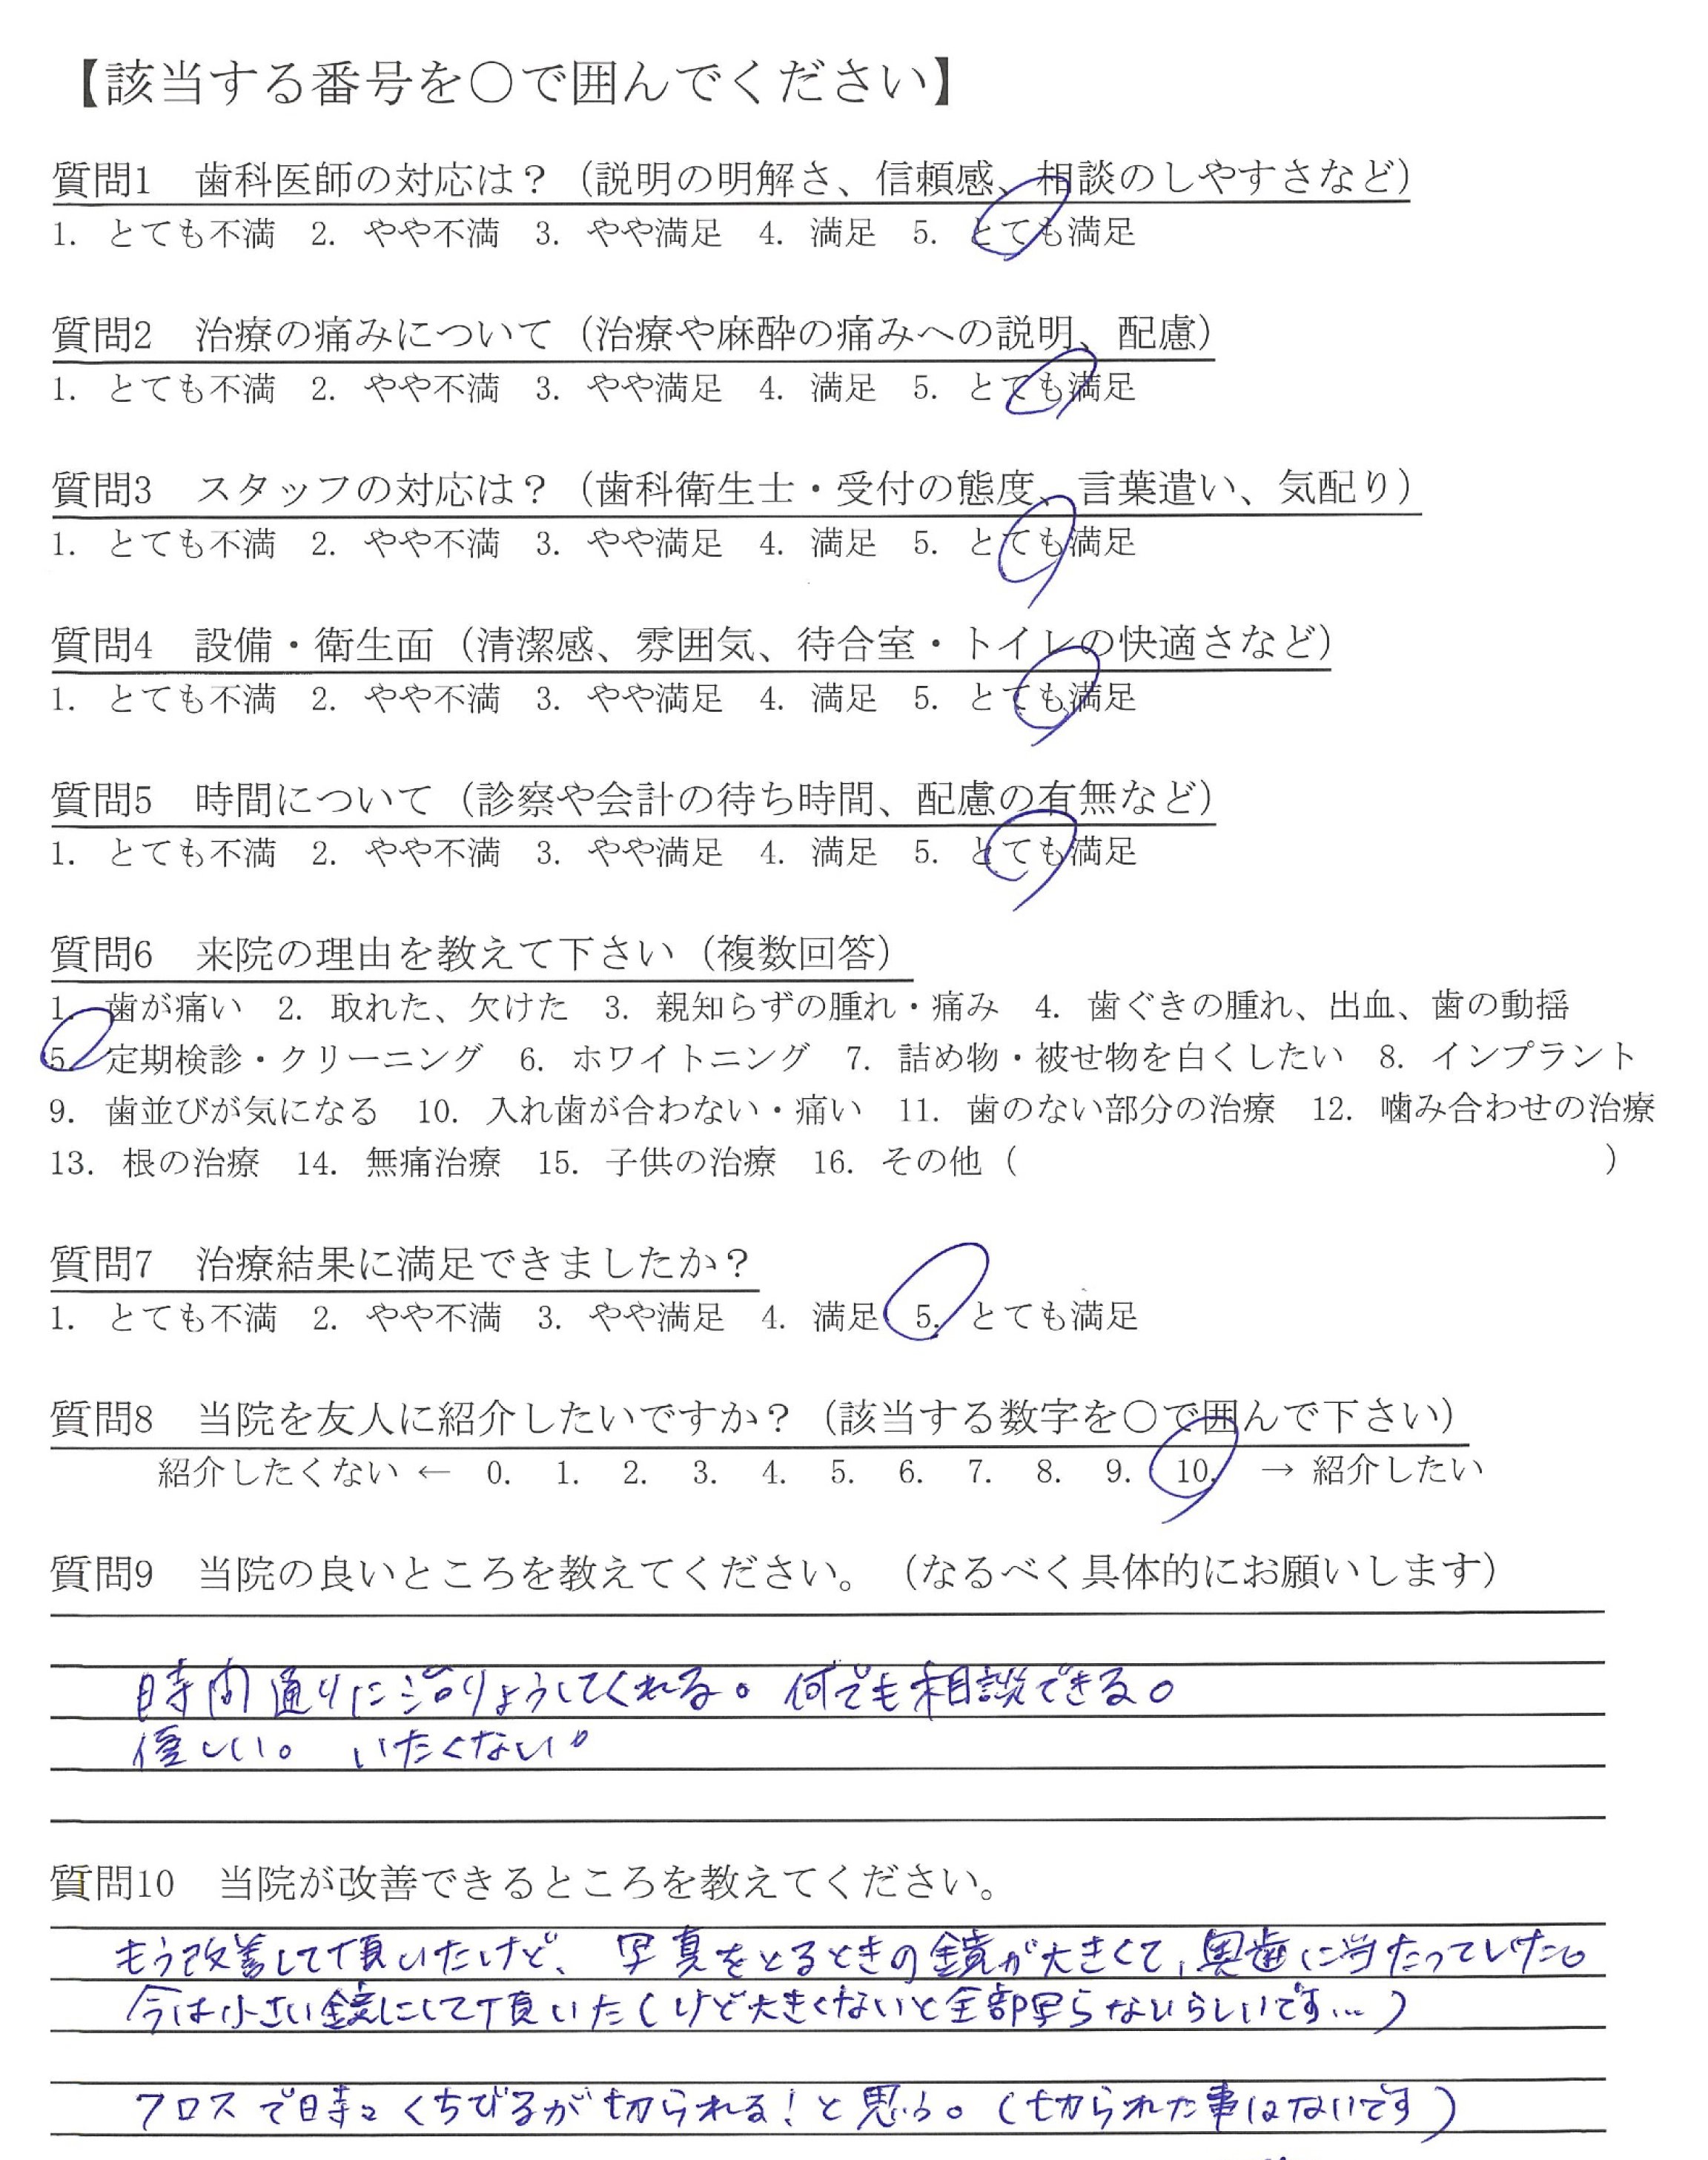 【該当する番号を○で囲んでください】
質問1　歯科医師の対応は？（説明の明解さ、信頼感、相談のしやすさなど）
1. とても不満　2. やや不満　3. やや満足　4. 満足　5. とても満足
質問2　治療の痛みについて（治療や麻酔の痛みへの説明、配慮）
1. とても不満　2. やや不満　3. やや満足　4. 満足　5. とても満足
質問3　スタッフの対応は？（歯科衛生士・受付の態度、言葉遣い、気配り）
1. とても不満　2. やや不満　3. やや満足　4. 満足　5. とても満足
質問4　設備・衛生面（清潔感、雰囲気、待合室・トイレの快適さなど）
1. とても不満　2. やや不満　3. やや満足　4. 満足　5. とても満足
質問5　時間について（診察や会計の待ち時間、配慮の有無など）
1. とても不満　2. やや不満　3. やや満足　4. 満足　5. とても満足
質問6　来院の理由を教えて下さい（複数回答）
1. 歯が痛い　2. 取れた、欠けた　3. 親知らずの腫れ・痛み　4. 歯ぐきの腫れ、出血、歯の動揺
5. 定期検診・クリーニング　6. ホワイトニング　7. 詰め物・被せ物を白くしたい　8. インプラント
9. 歯並びが気になる　10. 入れ歯が合わない・痛い　11. 歯のない部分の治療　12. 噛み合わせの治療
13. 根の治療　14. 無痛治療　15. 子供の治療　16. その他（　　　　　　　　）
質問7　治療結果に満足できましたか？
1. とても不満　2. やや不満　3. やや満足　4. 満足　5. とても満足
質問8　当院を友人に紹介したいですか？（該当する数字を○で囲んで下さい）
紹介したくない ← 0. 1. 2. 3. 4. 5. 6. 7. 8. 9. 10. → 紹介したい
質問9　当院の良いところを教えてください。（なるべく具体的にお願いします）
時間通りに治りょうしてくれる。何でも相談できる。
優しい。　いたくない。
質問10　当院が改善できるところを教えてください。
もう改善して頂いたけど、写真をとるときの鏡が大きくて、奥歯に当たっていた。
今は小さい鏡にして頂いた（けど大きくないと全部写らないらしいです…）
フロスで時々くちびるが切られる！と思う。（切られた事はないです）